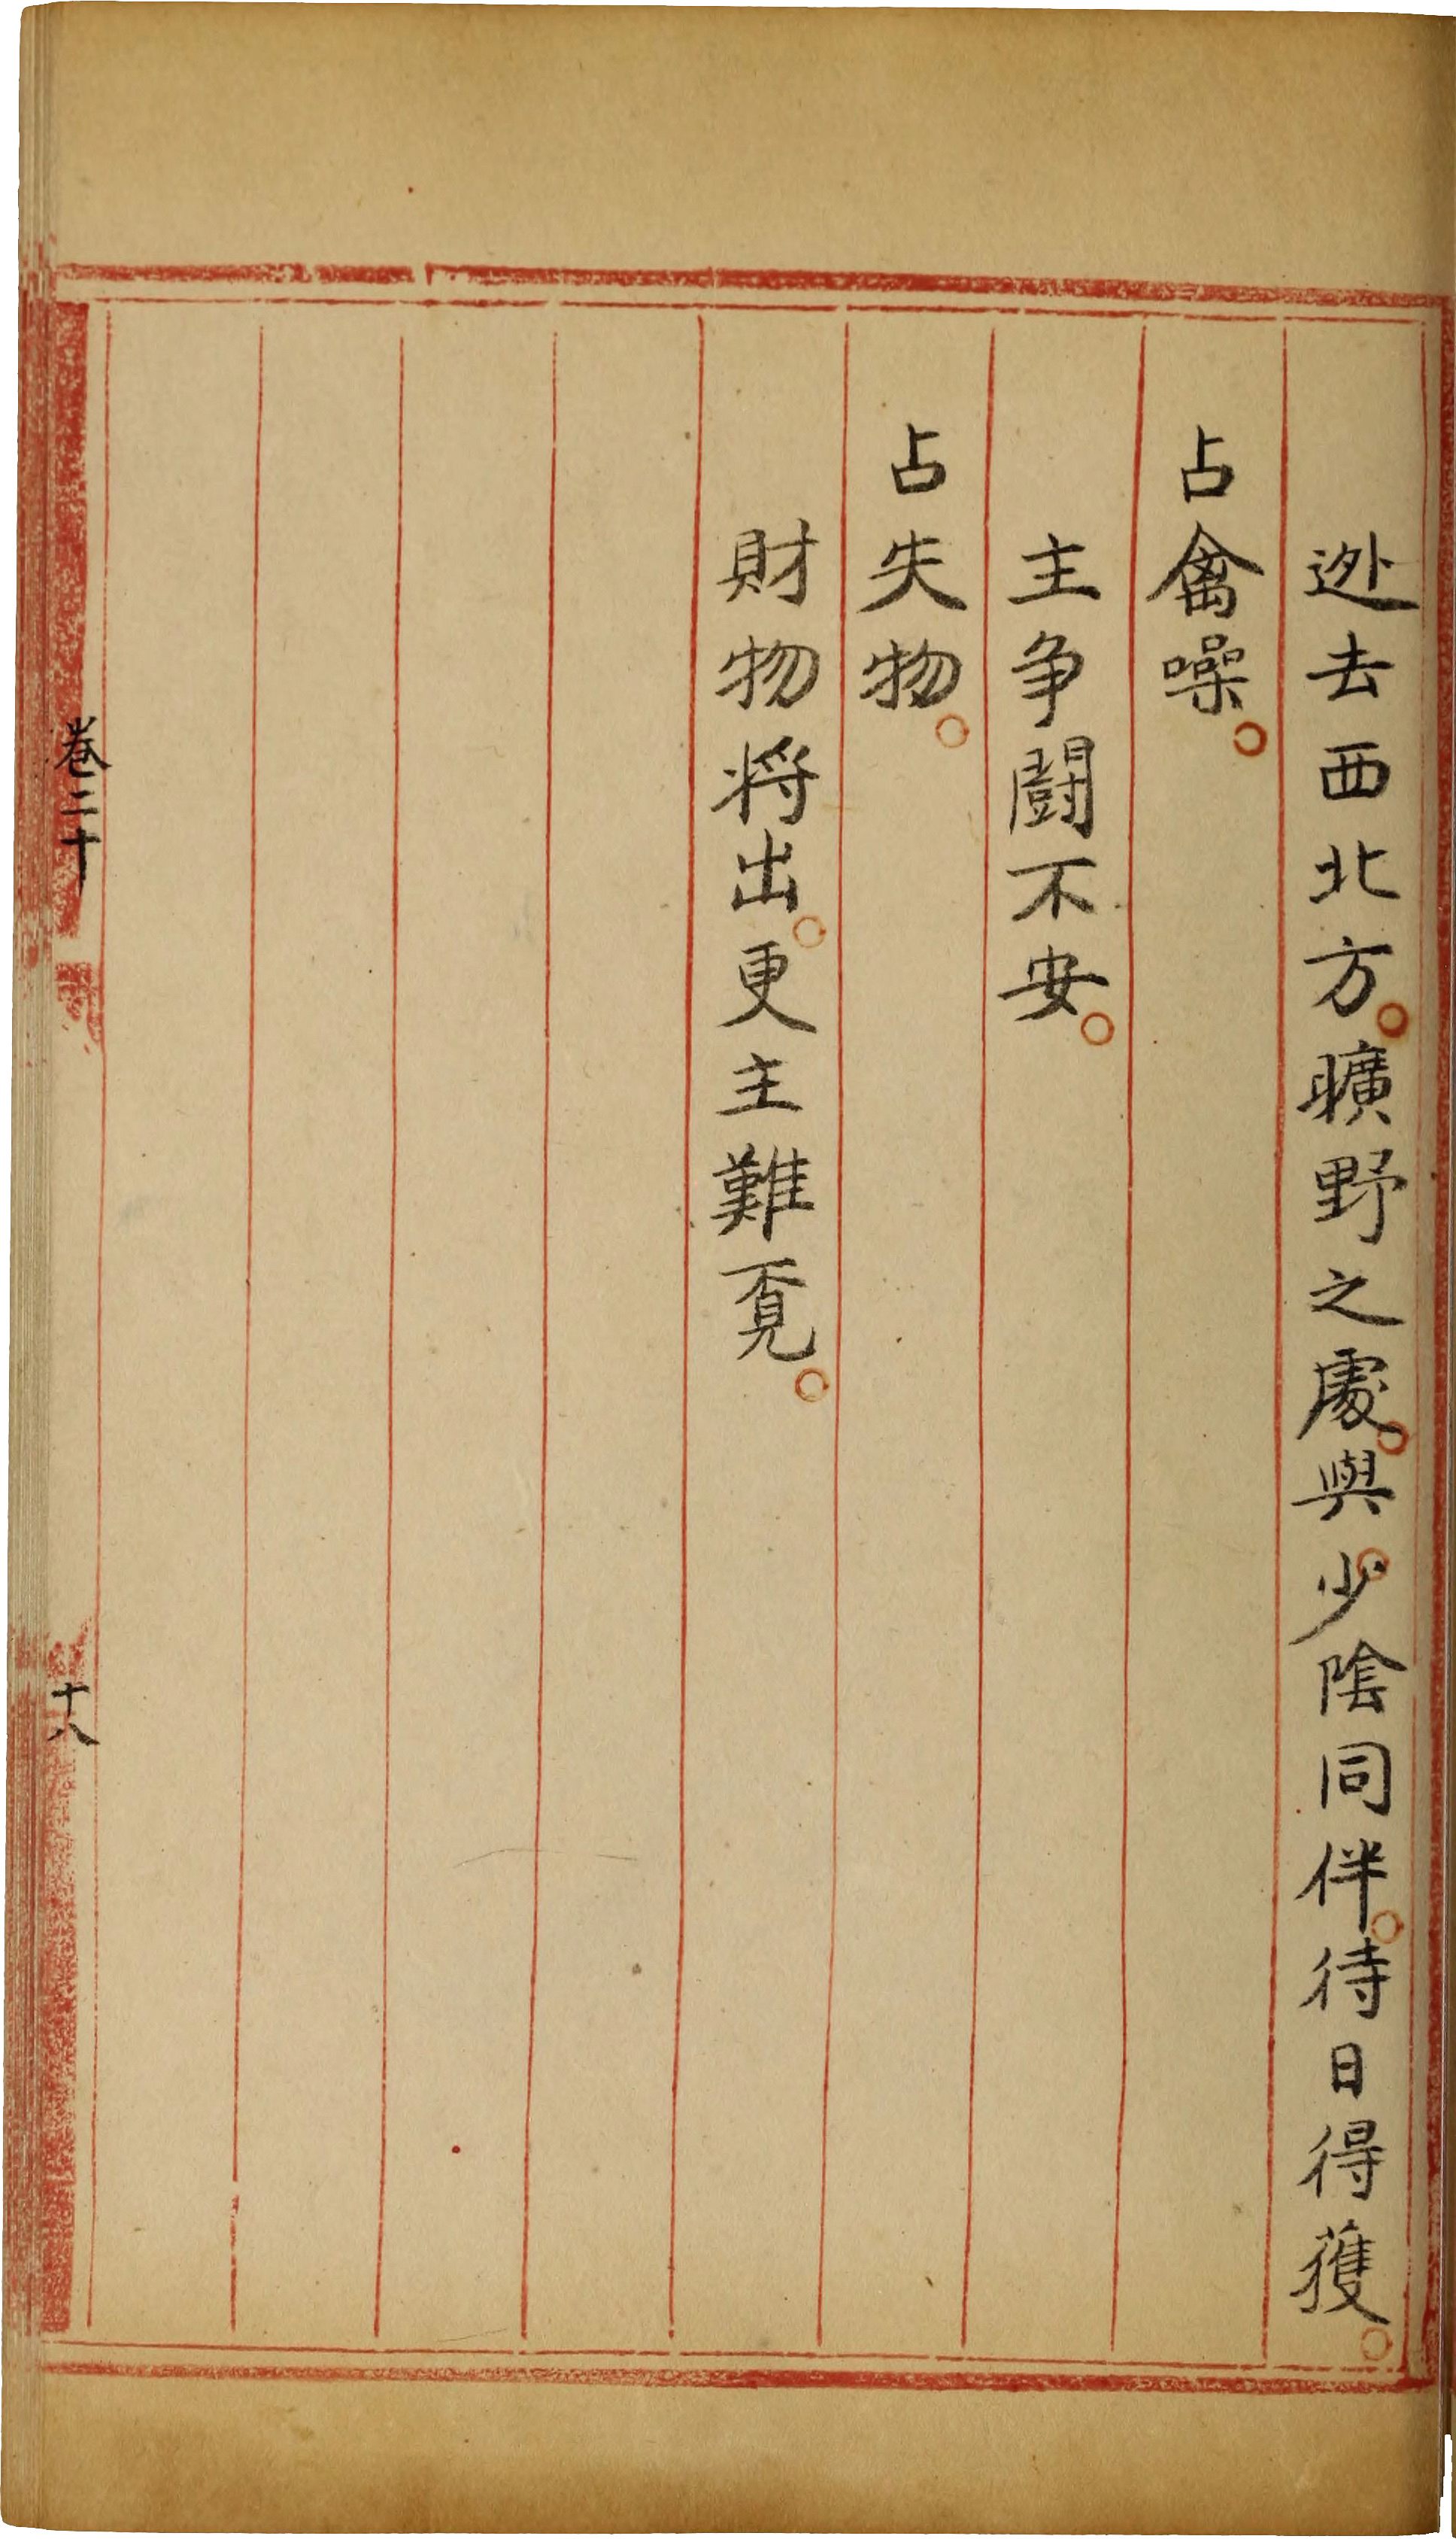 逃去西北方。曠野之處。與少陰同伴。待日得獲。
占禽噪。
主争鬪不安。
占失物。
財物将出。更主難覔。
卷二十
十八